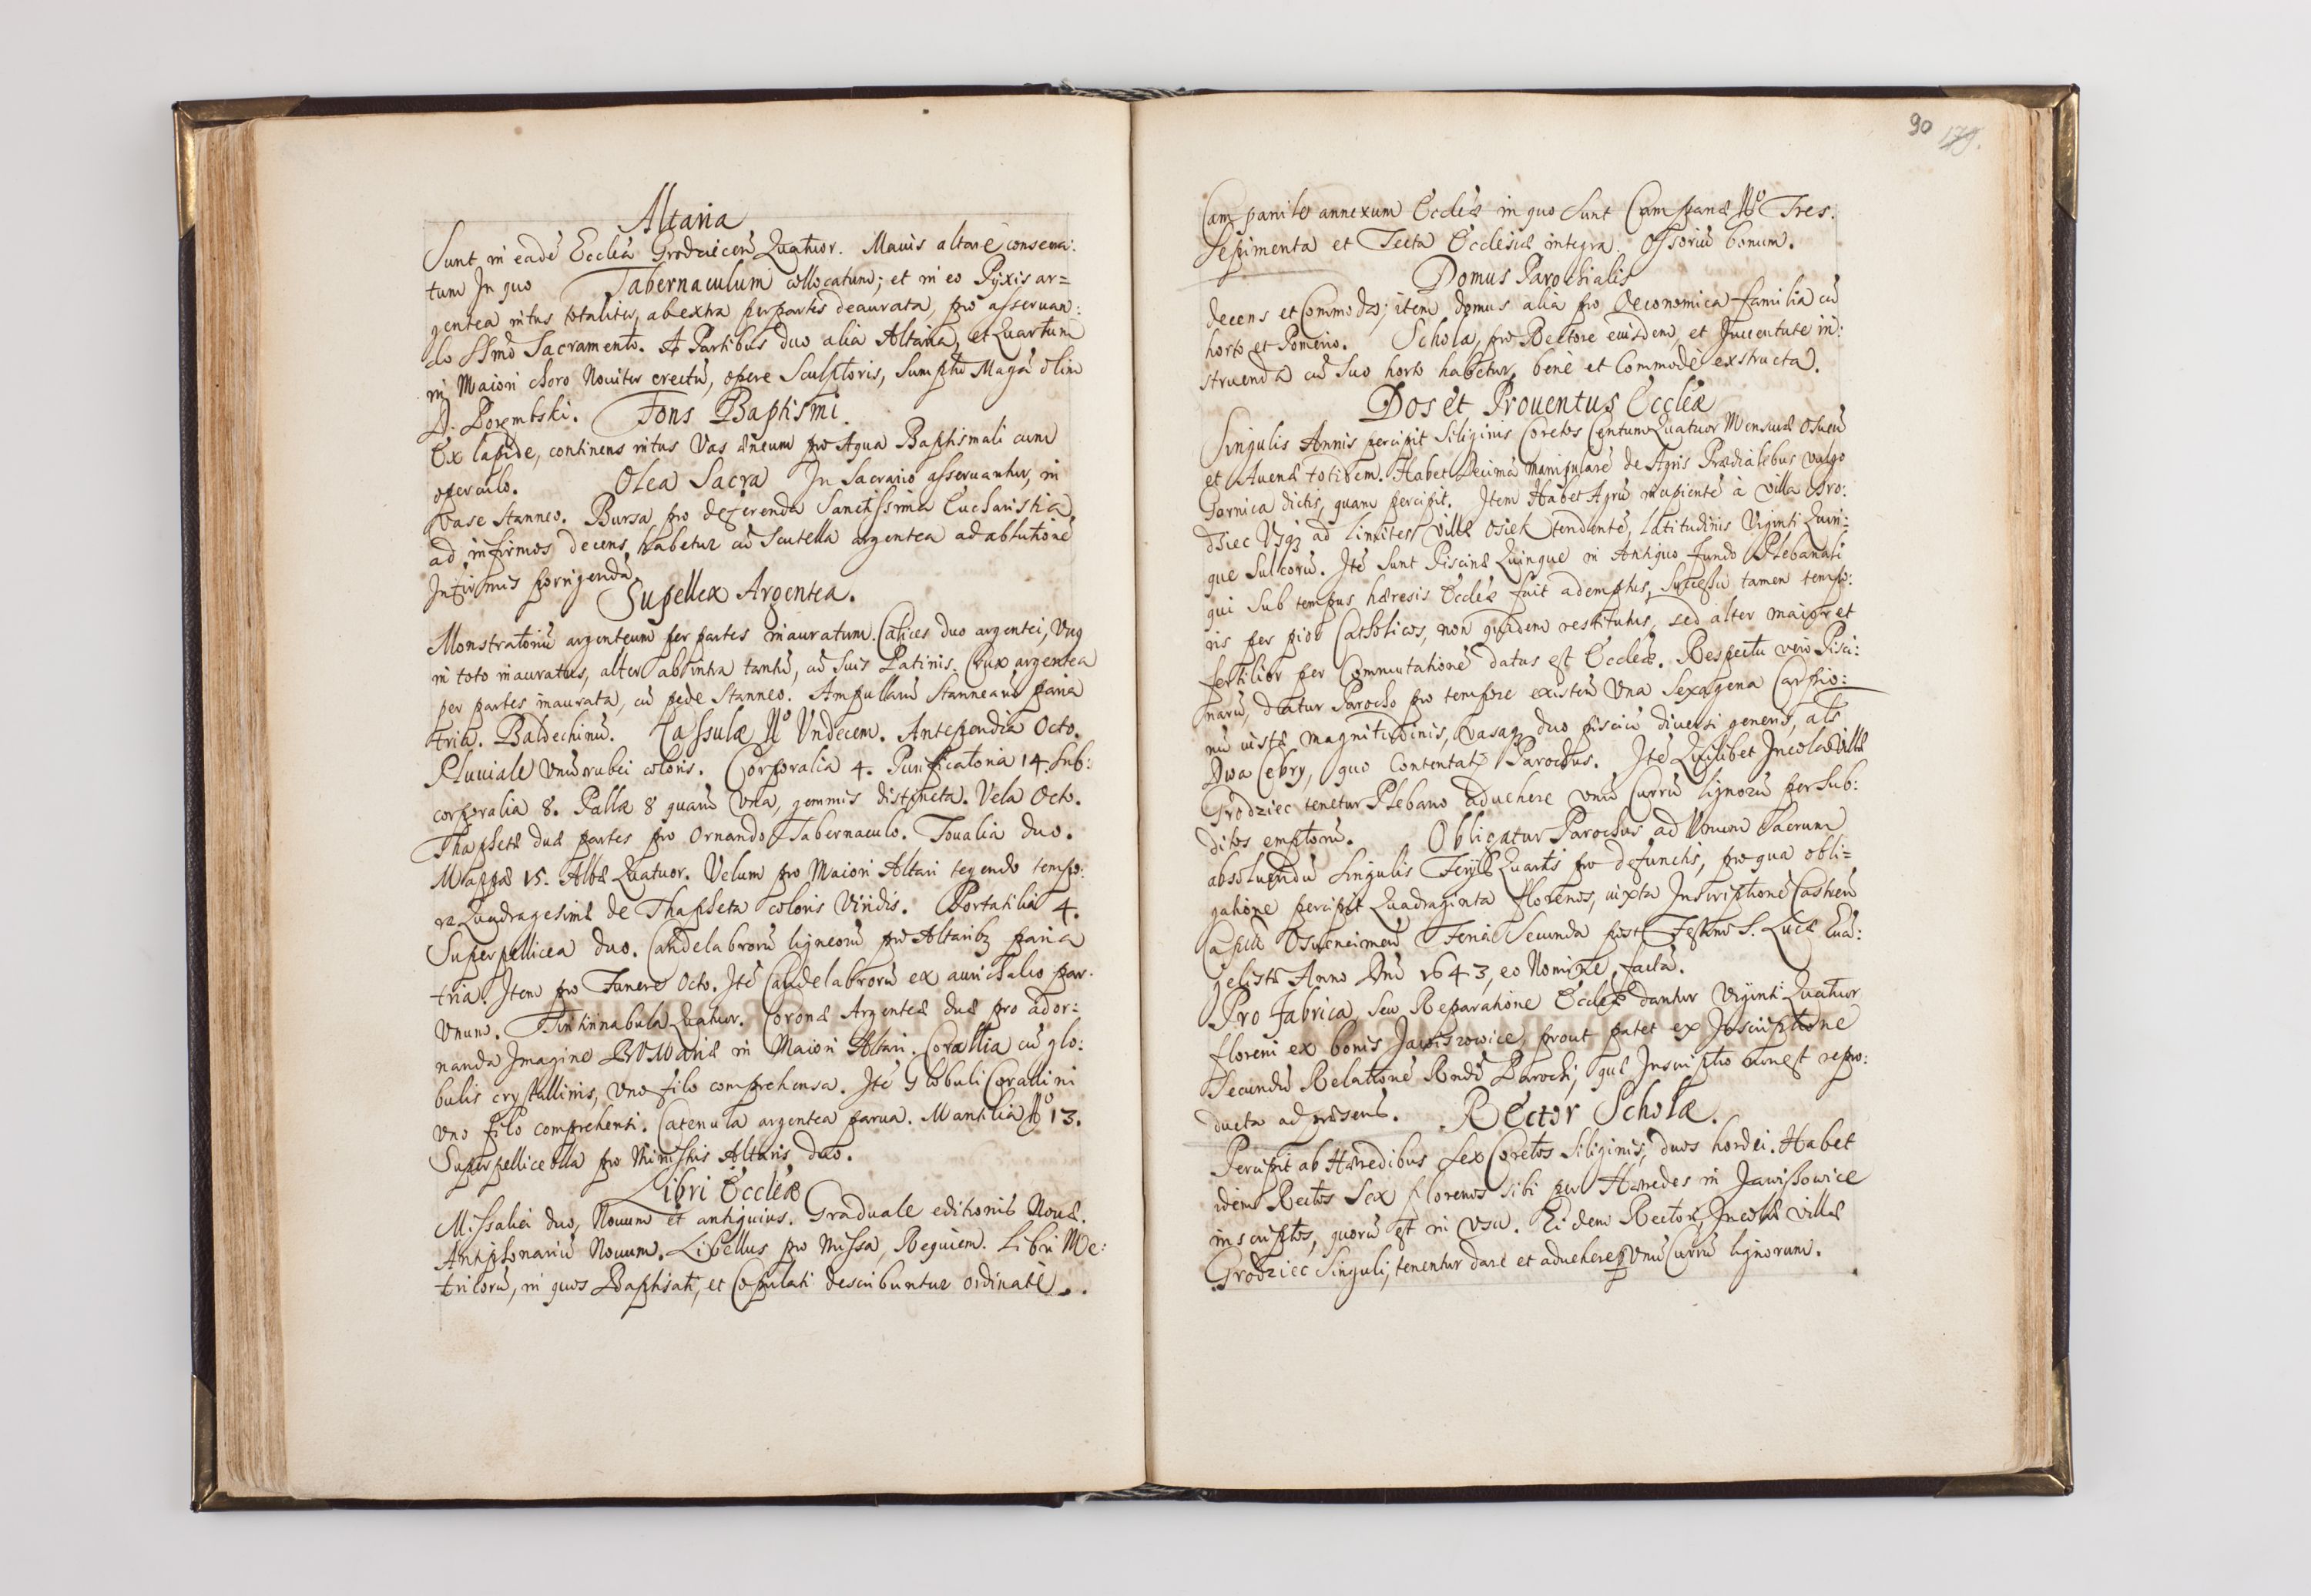 Altaria
Sunt in eadē Eccleā Grodziecen̄ Quatuor. Maius altare consecra:
tum In quo Tabernaculum collocatum; et in eo Pyxis ar=
gentea intus totaliter, ab extra per partes deaurata, pro asseruan:
do SSmō Sacramento. A Partibus duo alia Altaria, et Quartum
in Maiori choro Nouiter erectū, opere Sculptoris, Sumptu Magcī olim
D. Porembski. Fons Baptismi.
Ex lapide, continens intus Vas æneum pro Aqua Baptismali cum
operculo. Olea Sacra In Sacrario asseruantur, in
vase Stanneo. Bursa pro deferenda Sanctissima Eucharistia
ad infirmos decens habetur cū Scutella argentea ad ablutionē
Infirmis porrigendā.
Supellex Argentea.
Monstratoriū argenteum per partes inauratum. Calices duo argentei, Vnꝯ
in toto inauratus, alter ab intra tantū, cū suis Patinis. Crux argentea
per partes inaurata, cū pede Stanneo. Ampullarū Stannearū paria
tria. Baldechinū. Cassulæ No Vndecem. Antependia Octo.
Pluuiale vnū rubei coloris. Corporalia 4. Purificatoria 14. Sub:
corporalia 8. Pallæ 8 quarū vna, gemmis distincta. Vela Octo.
Thaphetæ duæ partes pro Ornando Tabernaculo. Toualia duo.
Mappæ 15. Albæ Quatuor. Velum pro Maiori Altari tegendo tempo:
re Quadragesimæ de Thapheta coloris Viridis. Portatilia 4.
Superpellicea duo. Candelabrorū ligneorū pro Altaribꝫ paria
tria. Item pro Funere Octo. Itē Candelabrorū ex aurichalco par
vnum. Tintinnabula Quatuor. Coronæ Argenteæ duæ pro ador:
nanda Imagine BVMariæ in Maiori Altari. Corallia cū glo:
bulis crystallinis, vno filo comprehensa. Itē Globuli Corallini
vno filo comprehensi. Catenula argentea parua. Mantilia No 13.
Superpelliceolla pro Ministris Altaris duo.
Libri Eccleæ
Missalia duo, Nouum et antiquius. Graduale editionis Nouæ.
Antiphonariū Nouum. Libellus pro Missa, Requiem. Libri Me:
tricorū, in quos Baptisati, et Copulati describuntur ordinatè.
90 179.
Campanile annexum Eccleæ in quo sunt Campanæ No Tres.
Sepimenta et Tecta Ecclesiæ integra. Ossoriū bonum.
Domus Parochialis
decens et Commoda; item domus alia pro Oeconomica familia cū
horto et Pomerio. Schola, pro Rectore eiusdem et Juuentute in:
struenda cū suo horto habetur, benè et Commodè exstructa.
Dos et Prouentus Eccleæ
Singulis Annis percipit Siliginis Coretos Centum Quatuor Mensuræ Osuecen̄
et Auenæ totidem. Habet Decimā manipularē de Agris Prædialibus vulgo
Gornica dictis, quam percipit. Item Habet Agrū incipientē à villa Gro:
dziec Vsqꝫ ad limites villæ Osiek tendentē, latitudinis Viginti Quin:
que Sulcorū. Itē sunt Piscinæ Quinque in Antiquo fundo Plebanali
qui sub tempus hæresis Eccleæ fuit ademptus, successu tamen tempo:
ris per pios Catholicos, non quidem restitutus, sed alter maior et
fertilior per Commutationē datus est Eccleæ. Respectu vero Pisci:
narū, datur Parocho pro tempore existen̄ Vna Sexagena Carpio:
nū iustæ magnitudinis, vasaqꝫ duo pisciū diuersi generis, als
Dwa Cebry, quo Contentatꝛ Parochus. Itē Quilibet Incola villæ
Grodziec tenetur Plebano aduehere vnū Currū lignorū per Sub:
ditos emptorū. Obligatur Parochus ad Vnum Sacrum
absoluendū singulis Ferijs Quartis pro defunctis, pro qua obli=
gatione percipit Quadraginta florenos, iuxta Inscriptionē Castren̄
Capitli Osuencimen̄ Feria Secunda post Festum S. Lucæ Euā:
gelistæ Anno Dni 1643, eo Nomine, factā.
Pro fabrica, seu Reparatione Eccleæ dantur Viginti Quatuor
floreni ex bonis Jawiszowice, prout patet ex Inscriptione
secundū Relationē Rndi Parochi, quæ Inscriptio non est repro:
ducta ad præsens. Rector Scholæ.
Percipit ab Hæredibus sex Coretos Siliginis, duos hordei. Habet
idem Rector Sex florenos sibi per Hæredes in Jawissowice
inscriptos, quorū est in vsu. Eidem Rectori, Incolæ villæ
Grodziec Singuli, tenentur dare et aduehere vnū Currū lignorum.